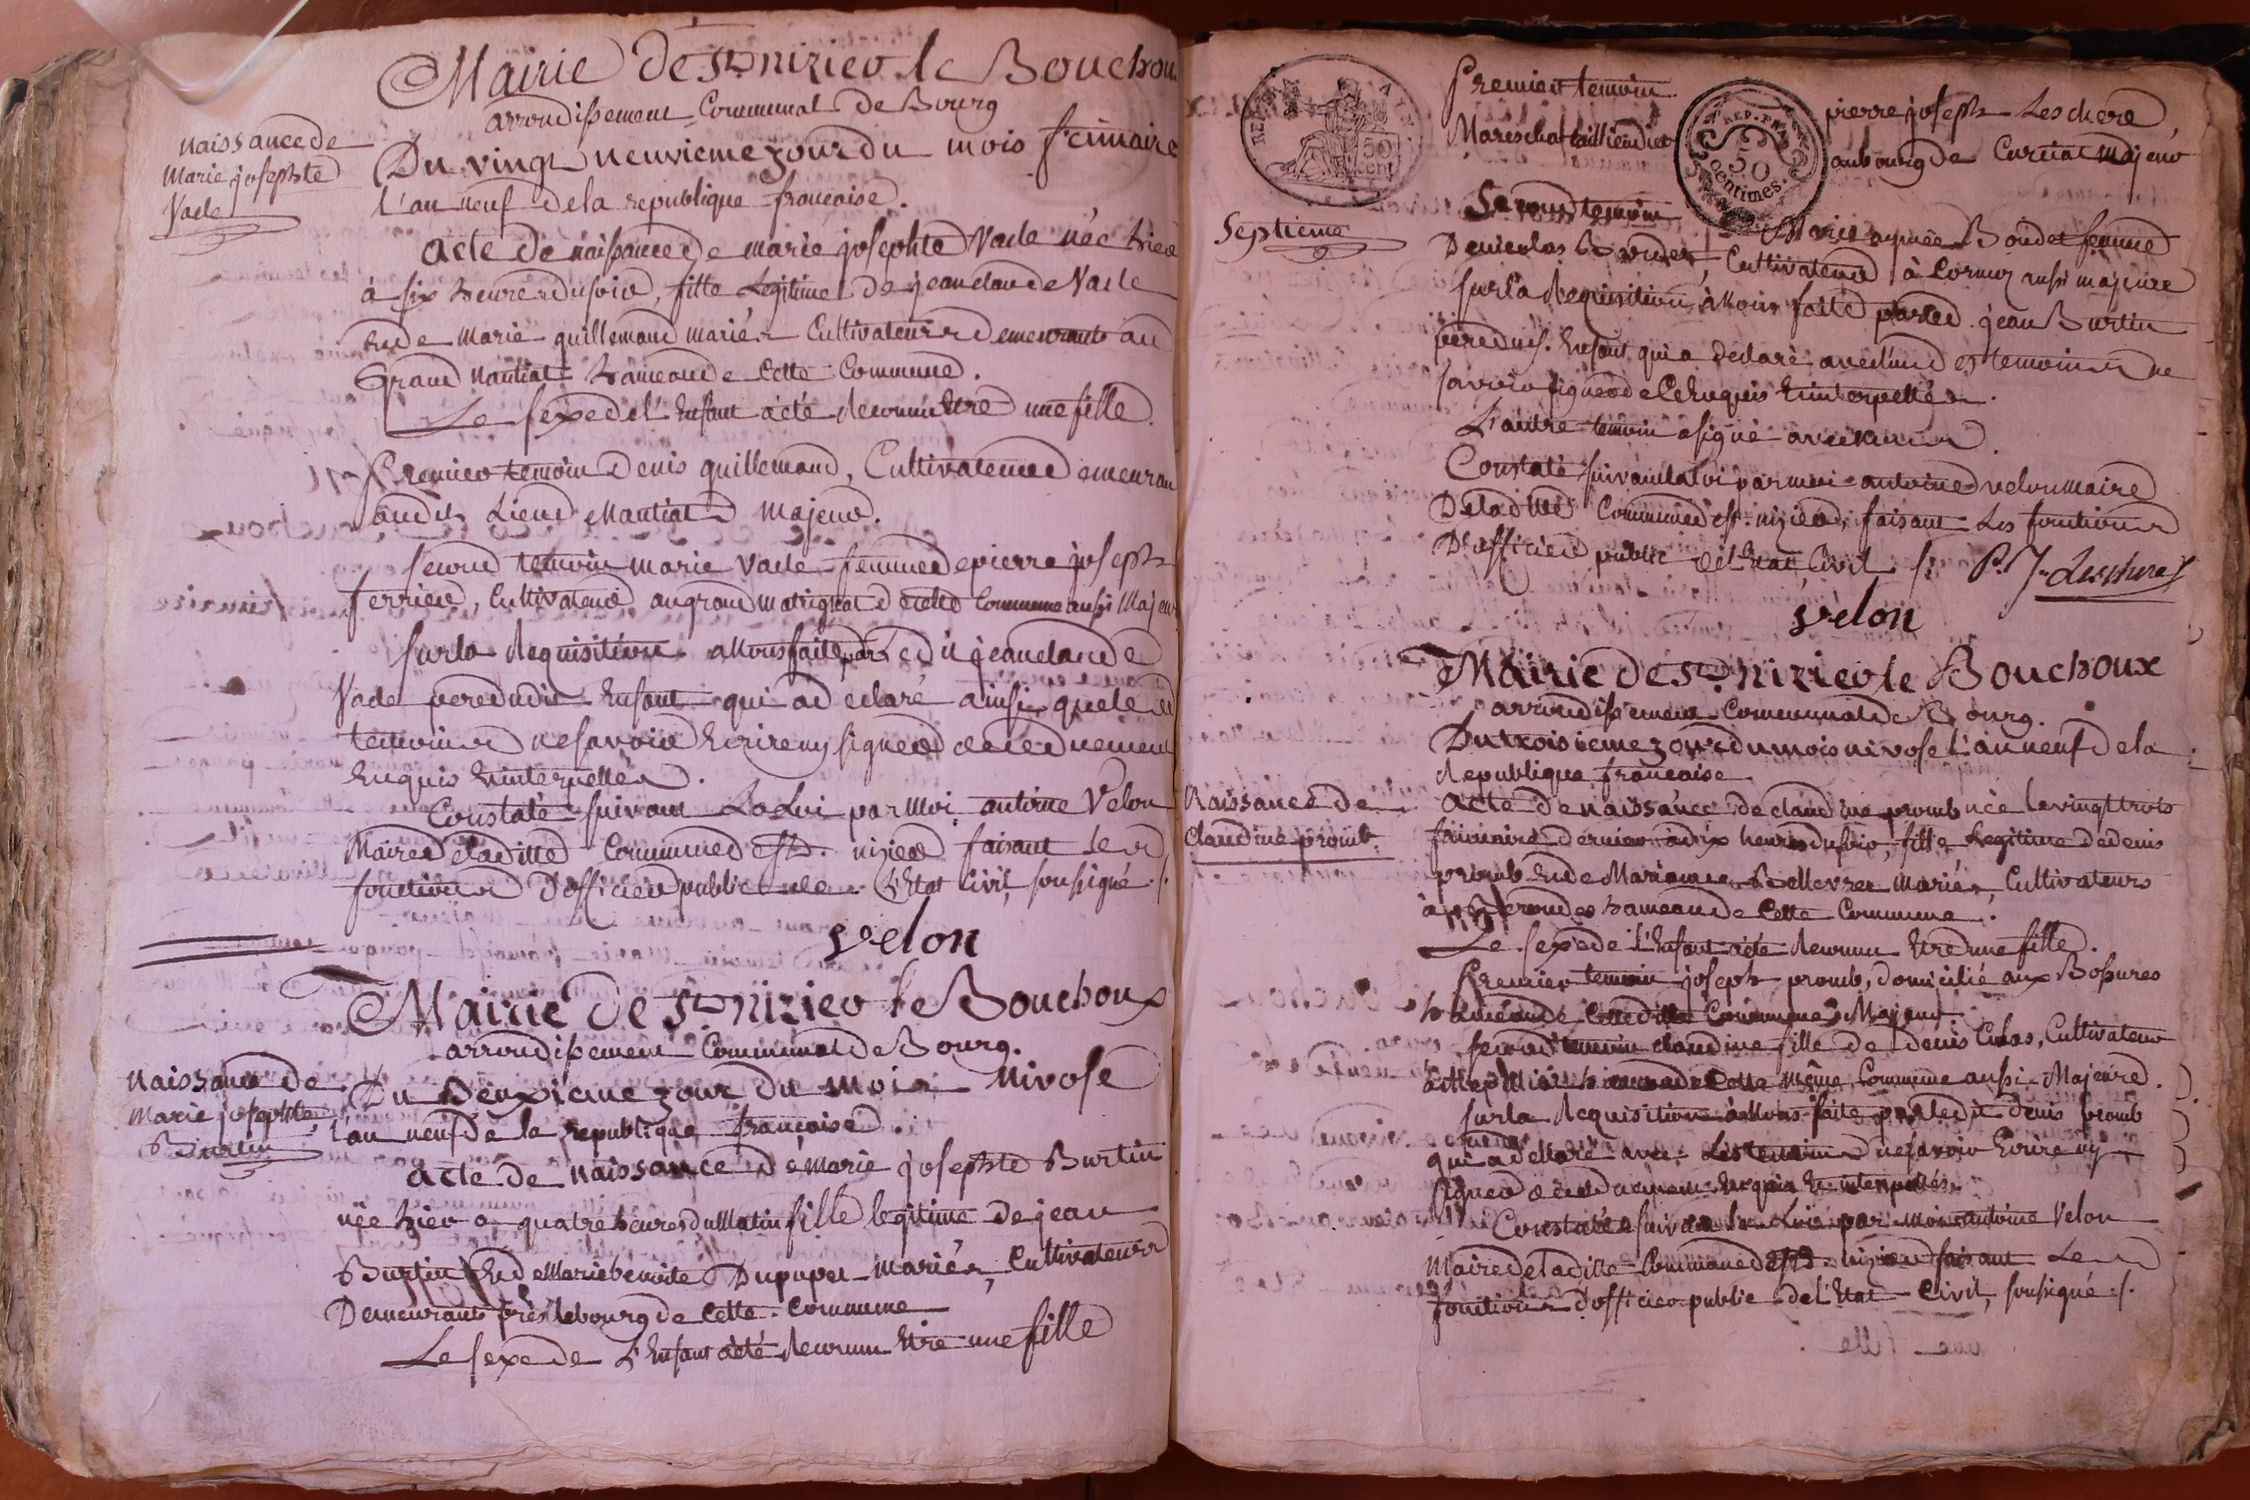 Mairie de St. nizier le Bouchoux
arrondissement Communal de Bourg
naissance de
Marie josephte
Vade
Du vingt neuvieme jour du mois frimaire
l'an neuf de la republique francaise.
acte de naissance de marie josephte Vade née hier
à six heures du soir, fille Legitime de jean claude Vade
et de Marie guillemaud mariés Cultivateurs demeurants au
Grand Nantiat hameau de Cette Commune.
Le sexe de l'Enfant a été Reconnu Etre une fille.
Premier temoin Denis guillemaud, Cultivateur demeurant
audit Lieu Mantiat Majeur.
Second temoin marie Vade femme de pierre joseph
ferrier, Cultivateur au grand de cette Commune aussi Majeur
Sur la Requisition a Nous faite par ledit jean claude
Vade pere dudit Enfant qui a declaré ainsi que les
temoins ne savoir Ecrire ny signer de ce duement
Enquis Et interpellés.
Constaté suivant La Loi par Moi antoine Velon
Maire de ladite Commune de St. nizier faisant les
fonctions D'officier public de L'Etat Civil, soussigné ./.
Velon
Mairie de St. nizier le Bouchoux
arrondissement Communal de Bourg.
naissance de
Marie josephte
Burtin
Du Deuxieme jour du mois Nivose
l'an neuf de la republique francaise.
acte de naissance de Marie josephte Burtin
née hier a quatre heures du Matin fille legitime de jean
Burtin Et de Marie benoite Dupupet mariés, Cultivateurs
Demeurants près le bourg de Cette Commune
Le sexe de L'Enfant a été Reconnu Etre une fille
REP. FRA.
50
Centimes.
Premier temoin pierre joseph Leschere,
Mareschal taillendier au bourg de Curciat Majeur
Septieme
Second temoin Marie aymée Boudet femme
De nicolas, Cultivateur à Cormoz aussi majeure
Sur la Requisition à Nous faite par led. jean Burtin
pere dud. Enfant qui a declaré avec l'un des temoins ne
savoir signer de Ce Enquis Et interpellés.
L'autre temoin a signé avec Nous
Constaté suivant la loi par moi antoine velon maire
De ladite Commune de St. nizier, faisant Les fonctions
D'officier public de l'Etat Civil ./. P. J. Leschere
Velon
Mairie de St. nizier le Bouchoux
arrondissement Communal de Bourg.
Du troisieme jour du mois nivose l'an neuf de la
Republique francaise
Naissance de
Claudine promb.
acte de naissance de claudine promb née le vingt trois
frimaire dernier à dix heures du soir, fille Legitime de denis
promb Et de Marianne mariés, Cultivateurs
hameau de Cette Commune.
Le sexe de l'Enfant a été Reconnu Etre une fille.
Premier temoin joseph promb, domicilié aux Bossures
hameau de Cettedite Commune Majeur
second temoin claudine fille de denis Colas, Cultivateur
hameau de Cette même Commune aussi Majeure.
Sur la Requisition à Nous faite par ledit denis promb
qui a declaré avec Les temoins ne savoir Ecrire ny
signer de ce duement Enquis Et interpellés.
Constaté suivant la Loi par Moi antoine Velon
Maire de ladite Commune de St. nizier faisant Les
fonctions d'officier public de l'Etat Civil, soussigné ./.